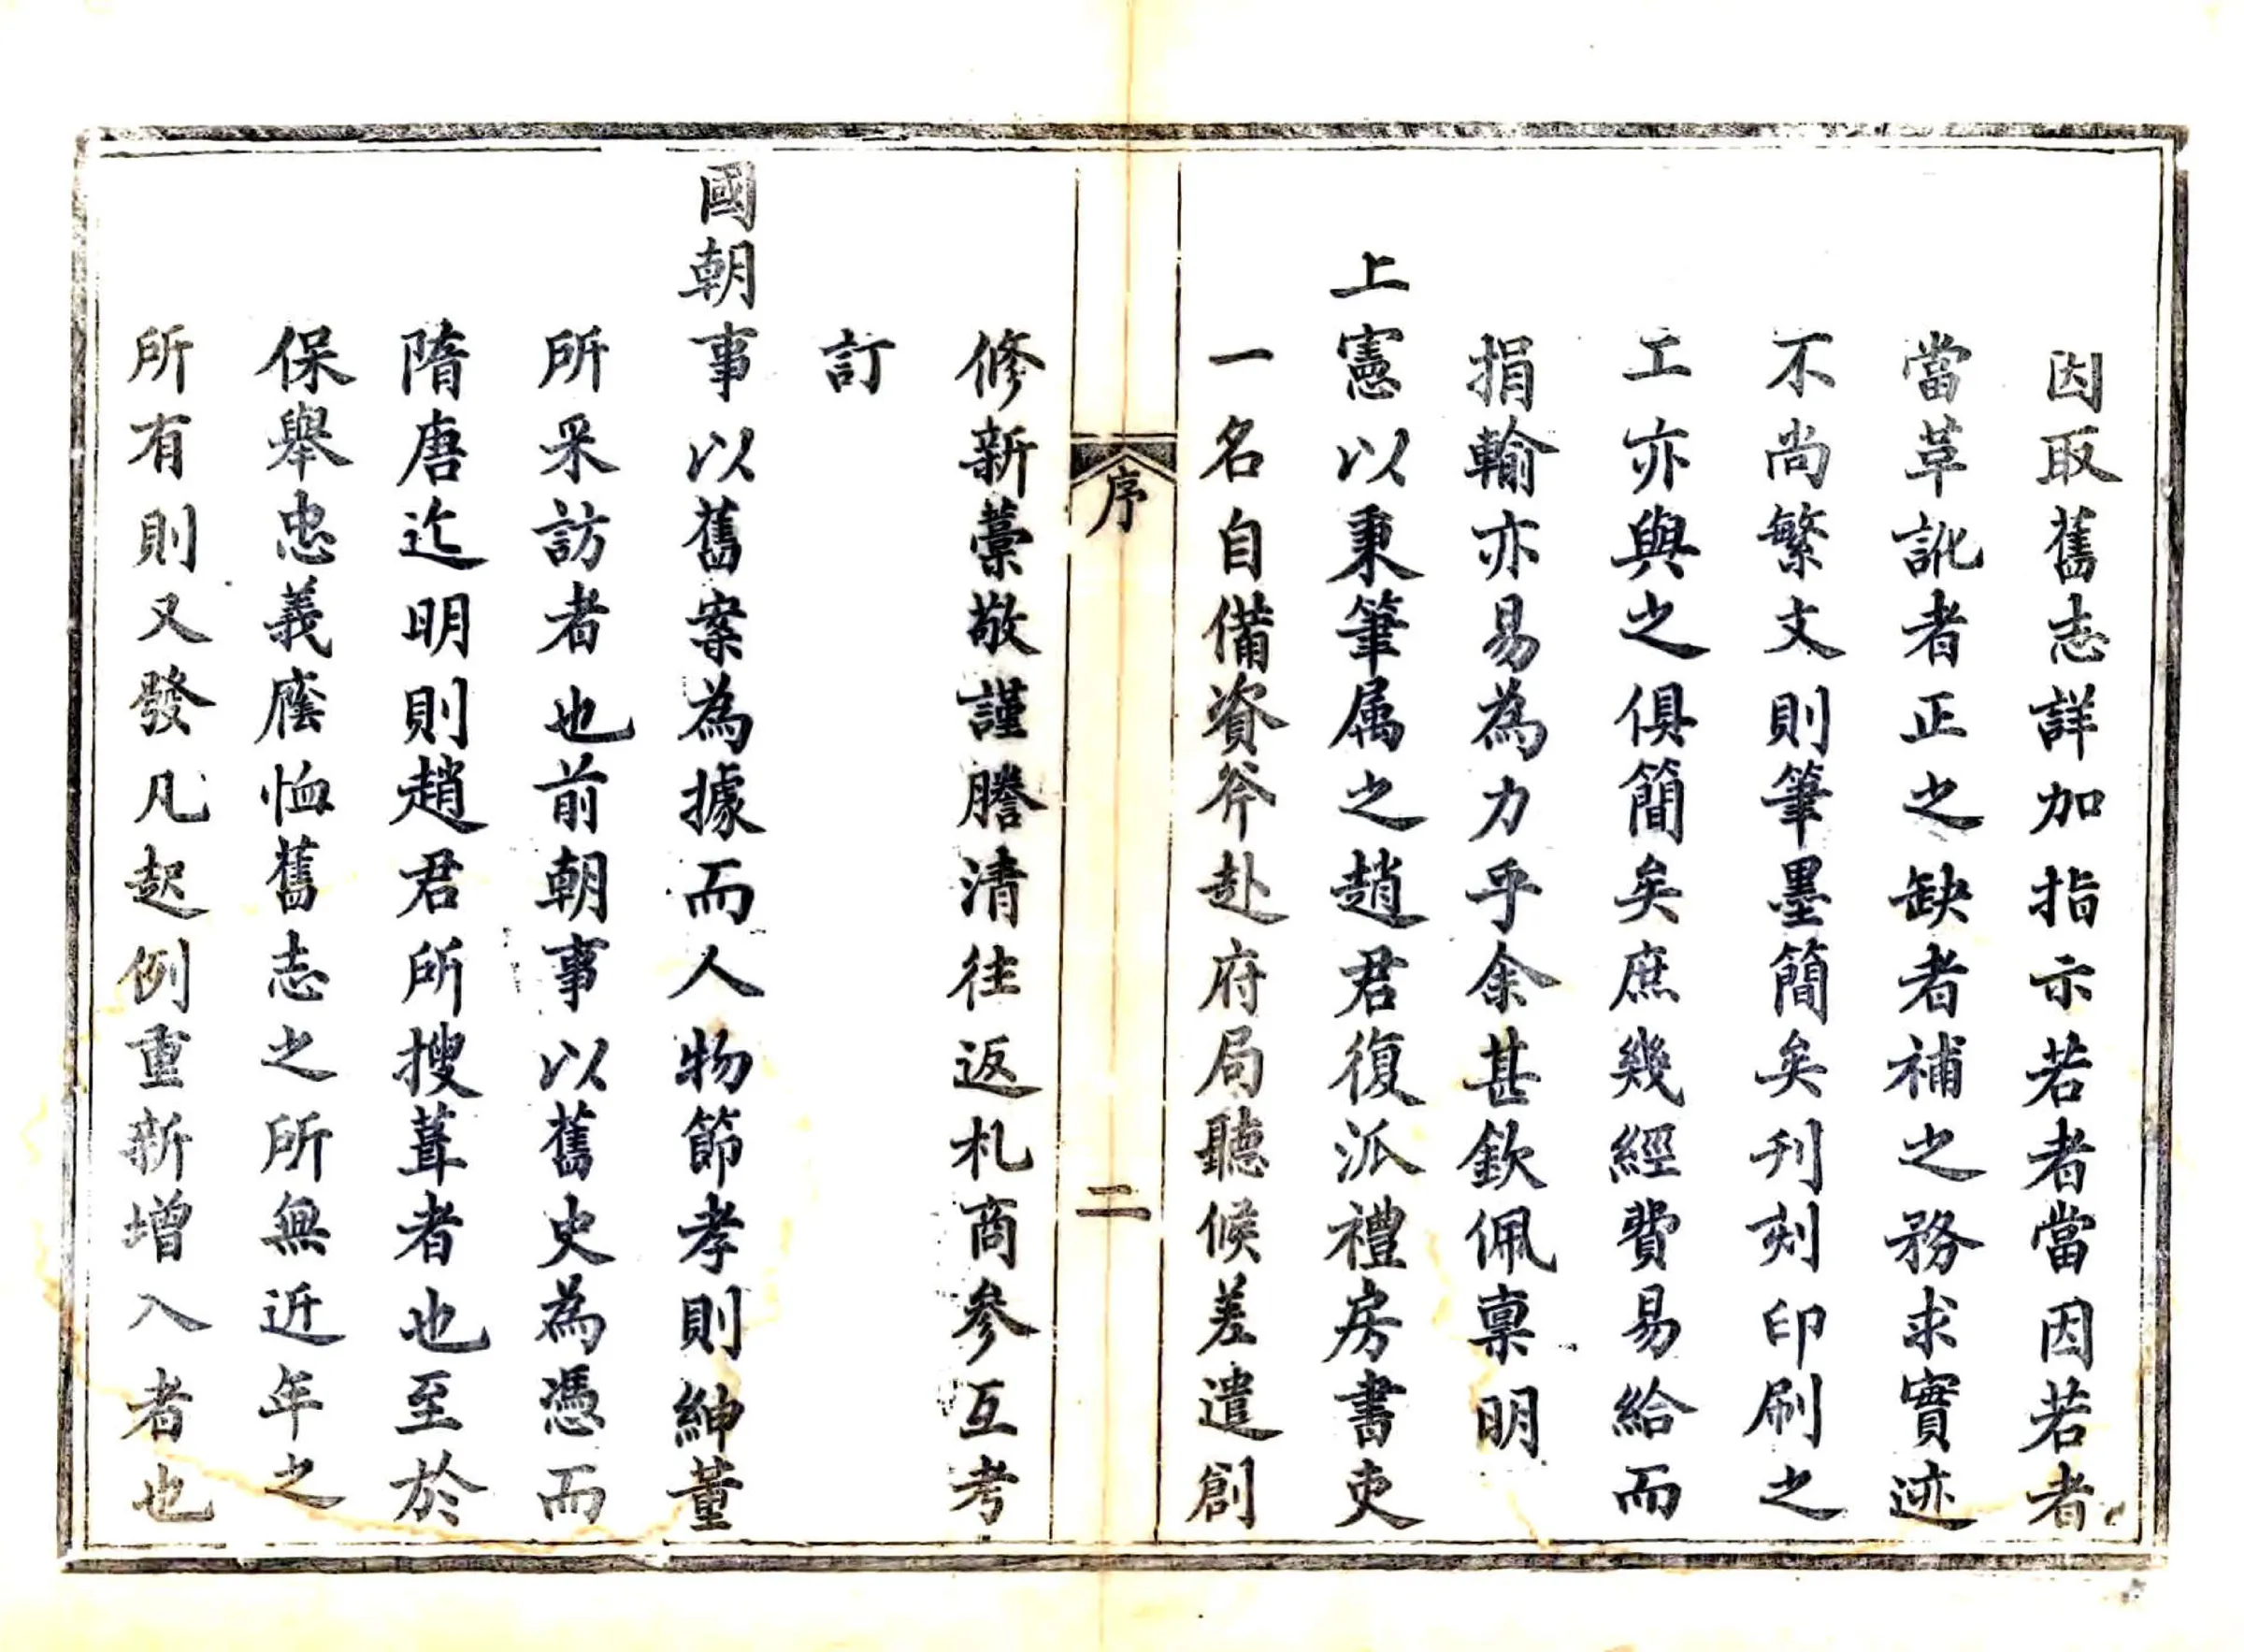 因取舊志詳加指示若者當因若者
當革訛者正之缺者補之務求實迹
不尚繁文則筆墨簡矣刋刻印刷之
工亦與之俱簡矣庶幾經費易給而
捐輸亦易為力乎余甚欽佩稟明
上憲以秉筆属之趙君復派禮房書吏
一名自備資斧赴府局聽候差遣創
序
二
修新藁敬謹謄清往返札商參互考
訂
國朝事以舊案為據而人物節孝則紳董
所采訪者也前朝事以舊史為憑而
隋唐迄明則趙君所搜葺者也至於
保舉忠義廕恤舊志之所無近年之
所有則又發凡起例重新增入者也